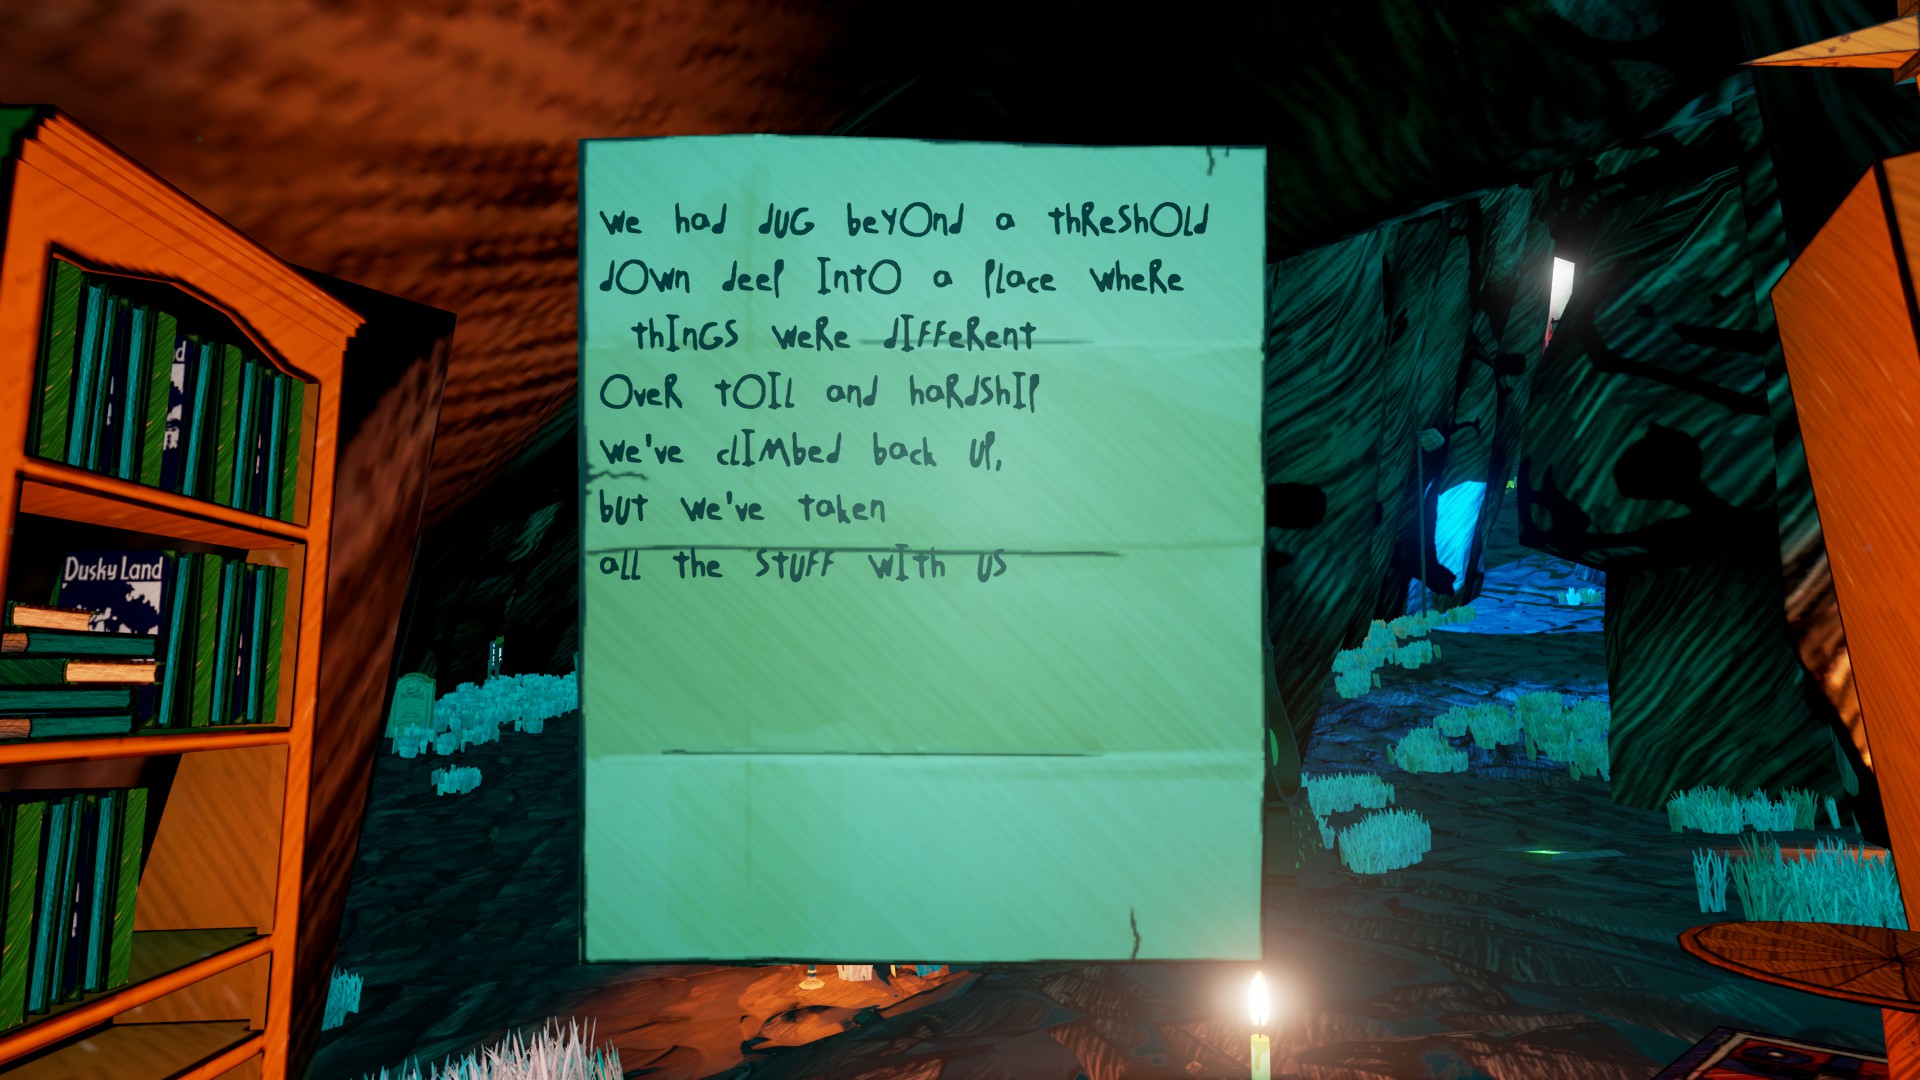 we had dUG beYOnd a thReshOld
dOwn deep IntO a place wheRe
thInGS weRe dIFFeRent
OveR tOIl and haRdshIp
we've clIMbed back UP,
bUt we've taken
all the STUFF wIth US
Dusky Land